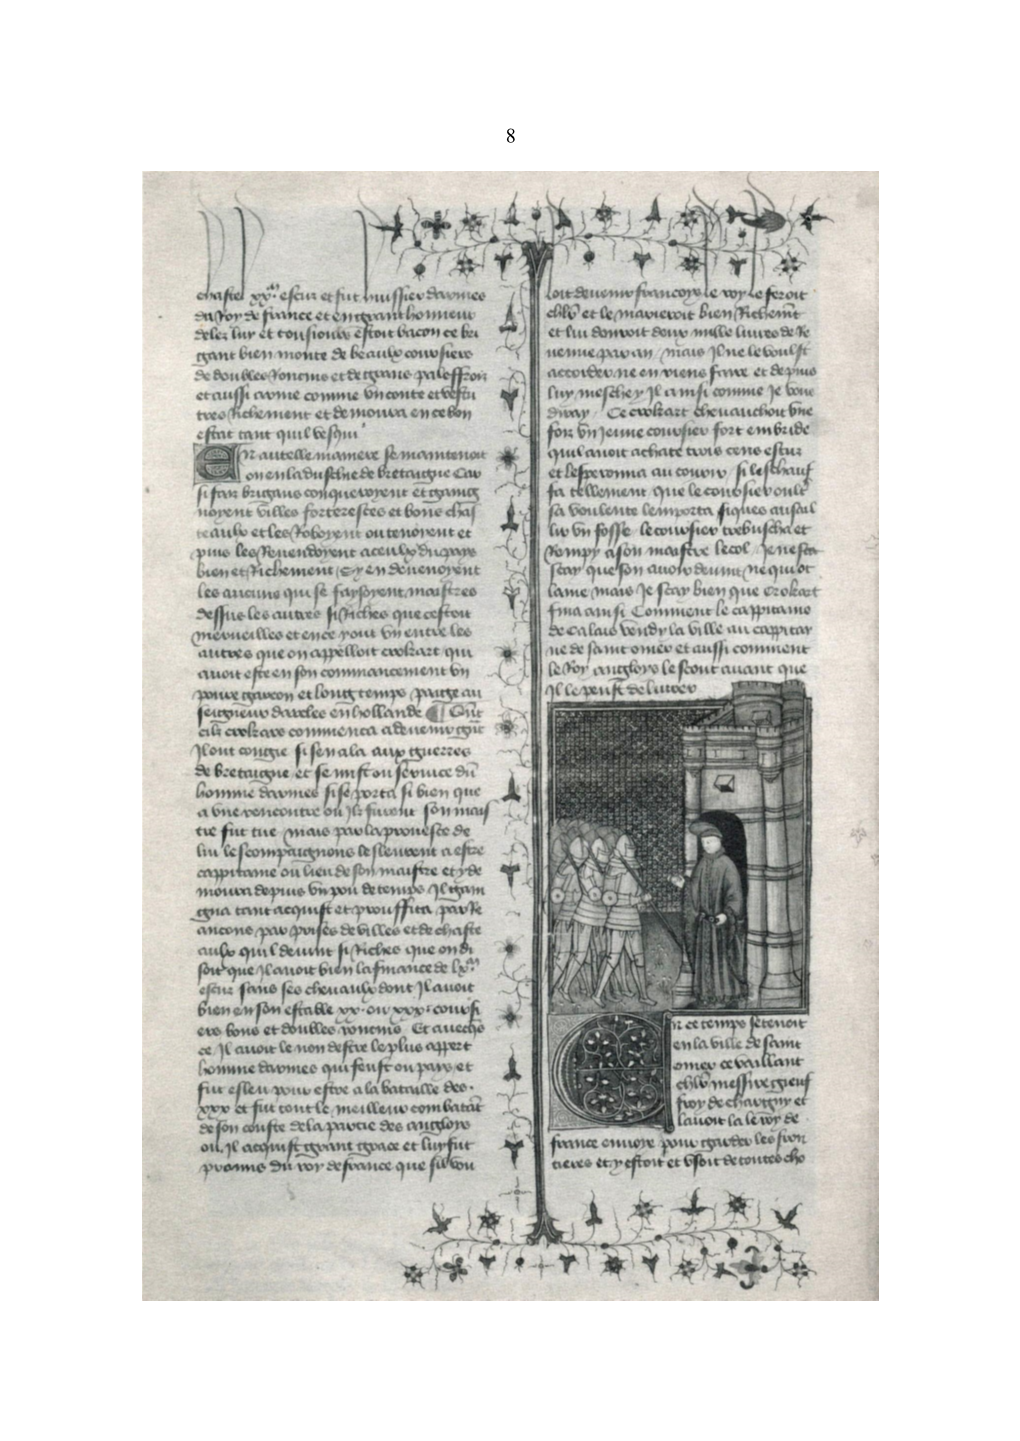 8
chastel xx.m escuz et fut huissier darmes
du Roy de france et en grant honneur
delez luy et tousiours estoit bacon ce bri
gant bien monte de beaulx coursiers
de doubles Roncins et de grans paleffrois
et aussi arme comme vn conte et vestu
tres Richement et demoura en ce bon
estat tant quil vesqui
En autelle maniere se maintenoit
on en la duschie de bretaigne Car
si fais brigans conqueroyent et gaaig
noyent villes forteresses et bons chas
teaulx et les Roboyent ou tenoyent et
puis les Reuendoyent a ceulx du pays
bien et Richement Sy en deuenoyent
les aucuns qui se faysoyent maistres
dessus les autres si Riches que cestoit
merueilles et en ce y out vn entre les
autres que on appelloit crokart qui
auoit este en son commancement vn
poure garcon et long temps paige au
seigneur dercles en hollande Quant
cilz crokars commenca a deuenir grant
Il out congie si sen ala aux guerres
de bretaigne et se mist ou seruice dun
homme darmes si se porta si bien que
a vne rencontre ou Ilz furent son mais
tre fut tue mais par la proueste de
lui les compaignons le sleurent a estre
cappitaine ou lieu de son maistre et y de
moura depuis vn pou de temps Il gaai
gna tant acquist et prouffita par Re
ancons par prises de villes et de chaste
aulx quil deuint si Riches que on di
soit que Il auoit bien la finance de lx.m
escuz sans ses cheuaulx dont Il auoit
bien en son estable xx. ou xxx. coursi
ers bons et doubles roncins Et auecqs
ce Il auoit le nom destre le plus appert
homme darmes qui feust ou pays et
fut esleu pour estre a la bataille des
xxx et fut tout le meilleur combatant
de son couste de la partie des anglois
ou Il acquist grant grace et luy fut
promis du roy de france que sil vou
loit deuenir francoys le roy le feroit
chlr et le marieroit bien Richemt
et lui donroit deux mille liures de Re
uenue par an mais Il ne le voulst
accorder ne en riens faire et depuis
luy meschey Il ainsi comme Je vous
diray Ce crokart cheuauchoit vne
fois vn Jeune coursier fort embride
quil auoit achate trois cens escuz
et lesperonna au courir si leschauf
fa tellement que le coursier oultre
sa voulente lemporta siques au sail
lir vn fosse le coursier trebuscha et
Rompy a son maistre le col Je ne sca
scay que son auoir deuint ne qui ot
lame mais Je scay bien que Crokart
fina ainsi Comment le cappitaine
de Calais vendy la ville au cappitay
ne de saint omer et aussi comment
le Roy anglois le sceut auant que
Il le peust deliurer
En ce temps se tenoit
en la ville de saint
omer ce vaillant
chlr messire gieuf
froy de chargny et
lauoit la le roy de
france enuoye pour garder les fron
tieres et y estoit et vsoit de toutes cho